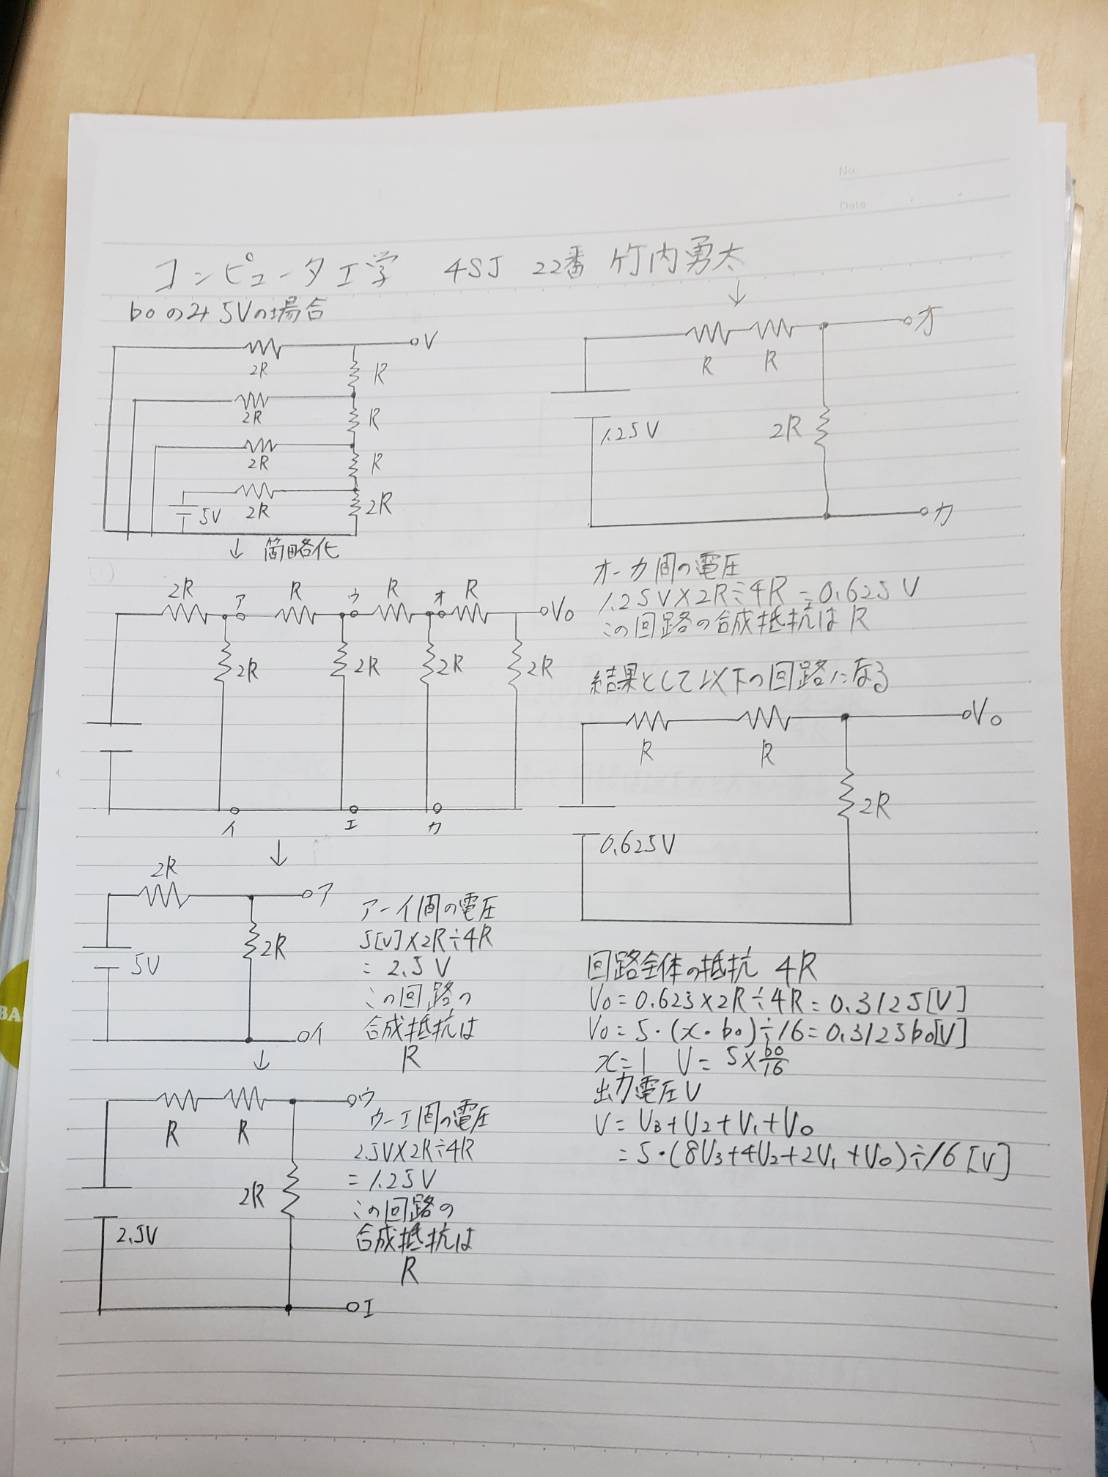 No.
Date
コンピュータ工学 4SJ 22番 竹内勇太
b0のみ5Vの場合
V
2R
R
2R
R
2R
R
5V
2R
2R
↓ 簡略化
2R
ア
R
ウ
R
オ
R
V0
2R
2R
2R
2R
イ
エ
カ
↓
2R
ア
2R
5V
イ
ア-イ間の電圧
5[V]×2R÷4R
= 2.5V
この回路の
合成抵抗は
R
↓
ウ
R
R
2R
2.5V
エ
ウ-エ間の電圧
2.5V×2R÷4R
=1.25V
この回路の
合成抵抗は
R
↓
オ
R
R
1.25V
2R
カ
オ-カ間の電圧
1.25V×2R÷4R=0.625V
この回路の合成抵抗はR
結果として以下の回路になる
V0
R
R
2R
0.625V
回路全体の抵抗 4R
V0=0.625×2R÷4R=0.3125[V]
V0=5・(x・b0)÷16=0.3125b0[V]
x=1 V=5×b0/16
出力電圧V
V=V3+V2+V1+V0
=5・(8V3+4V2+2V1+V0)÷16[V]
BA